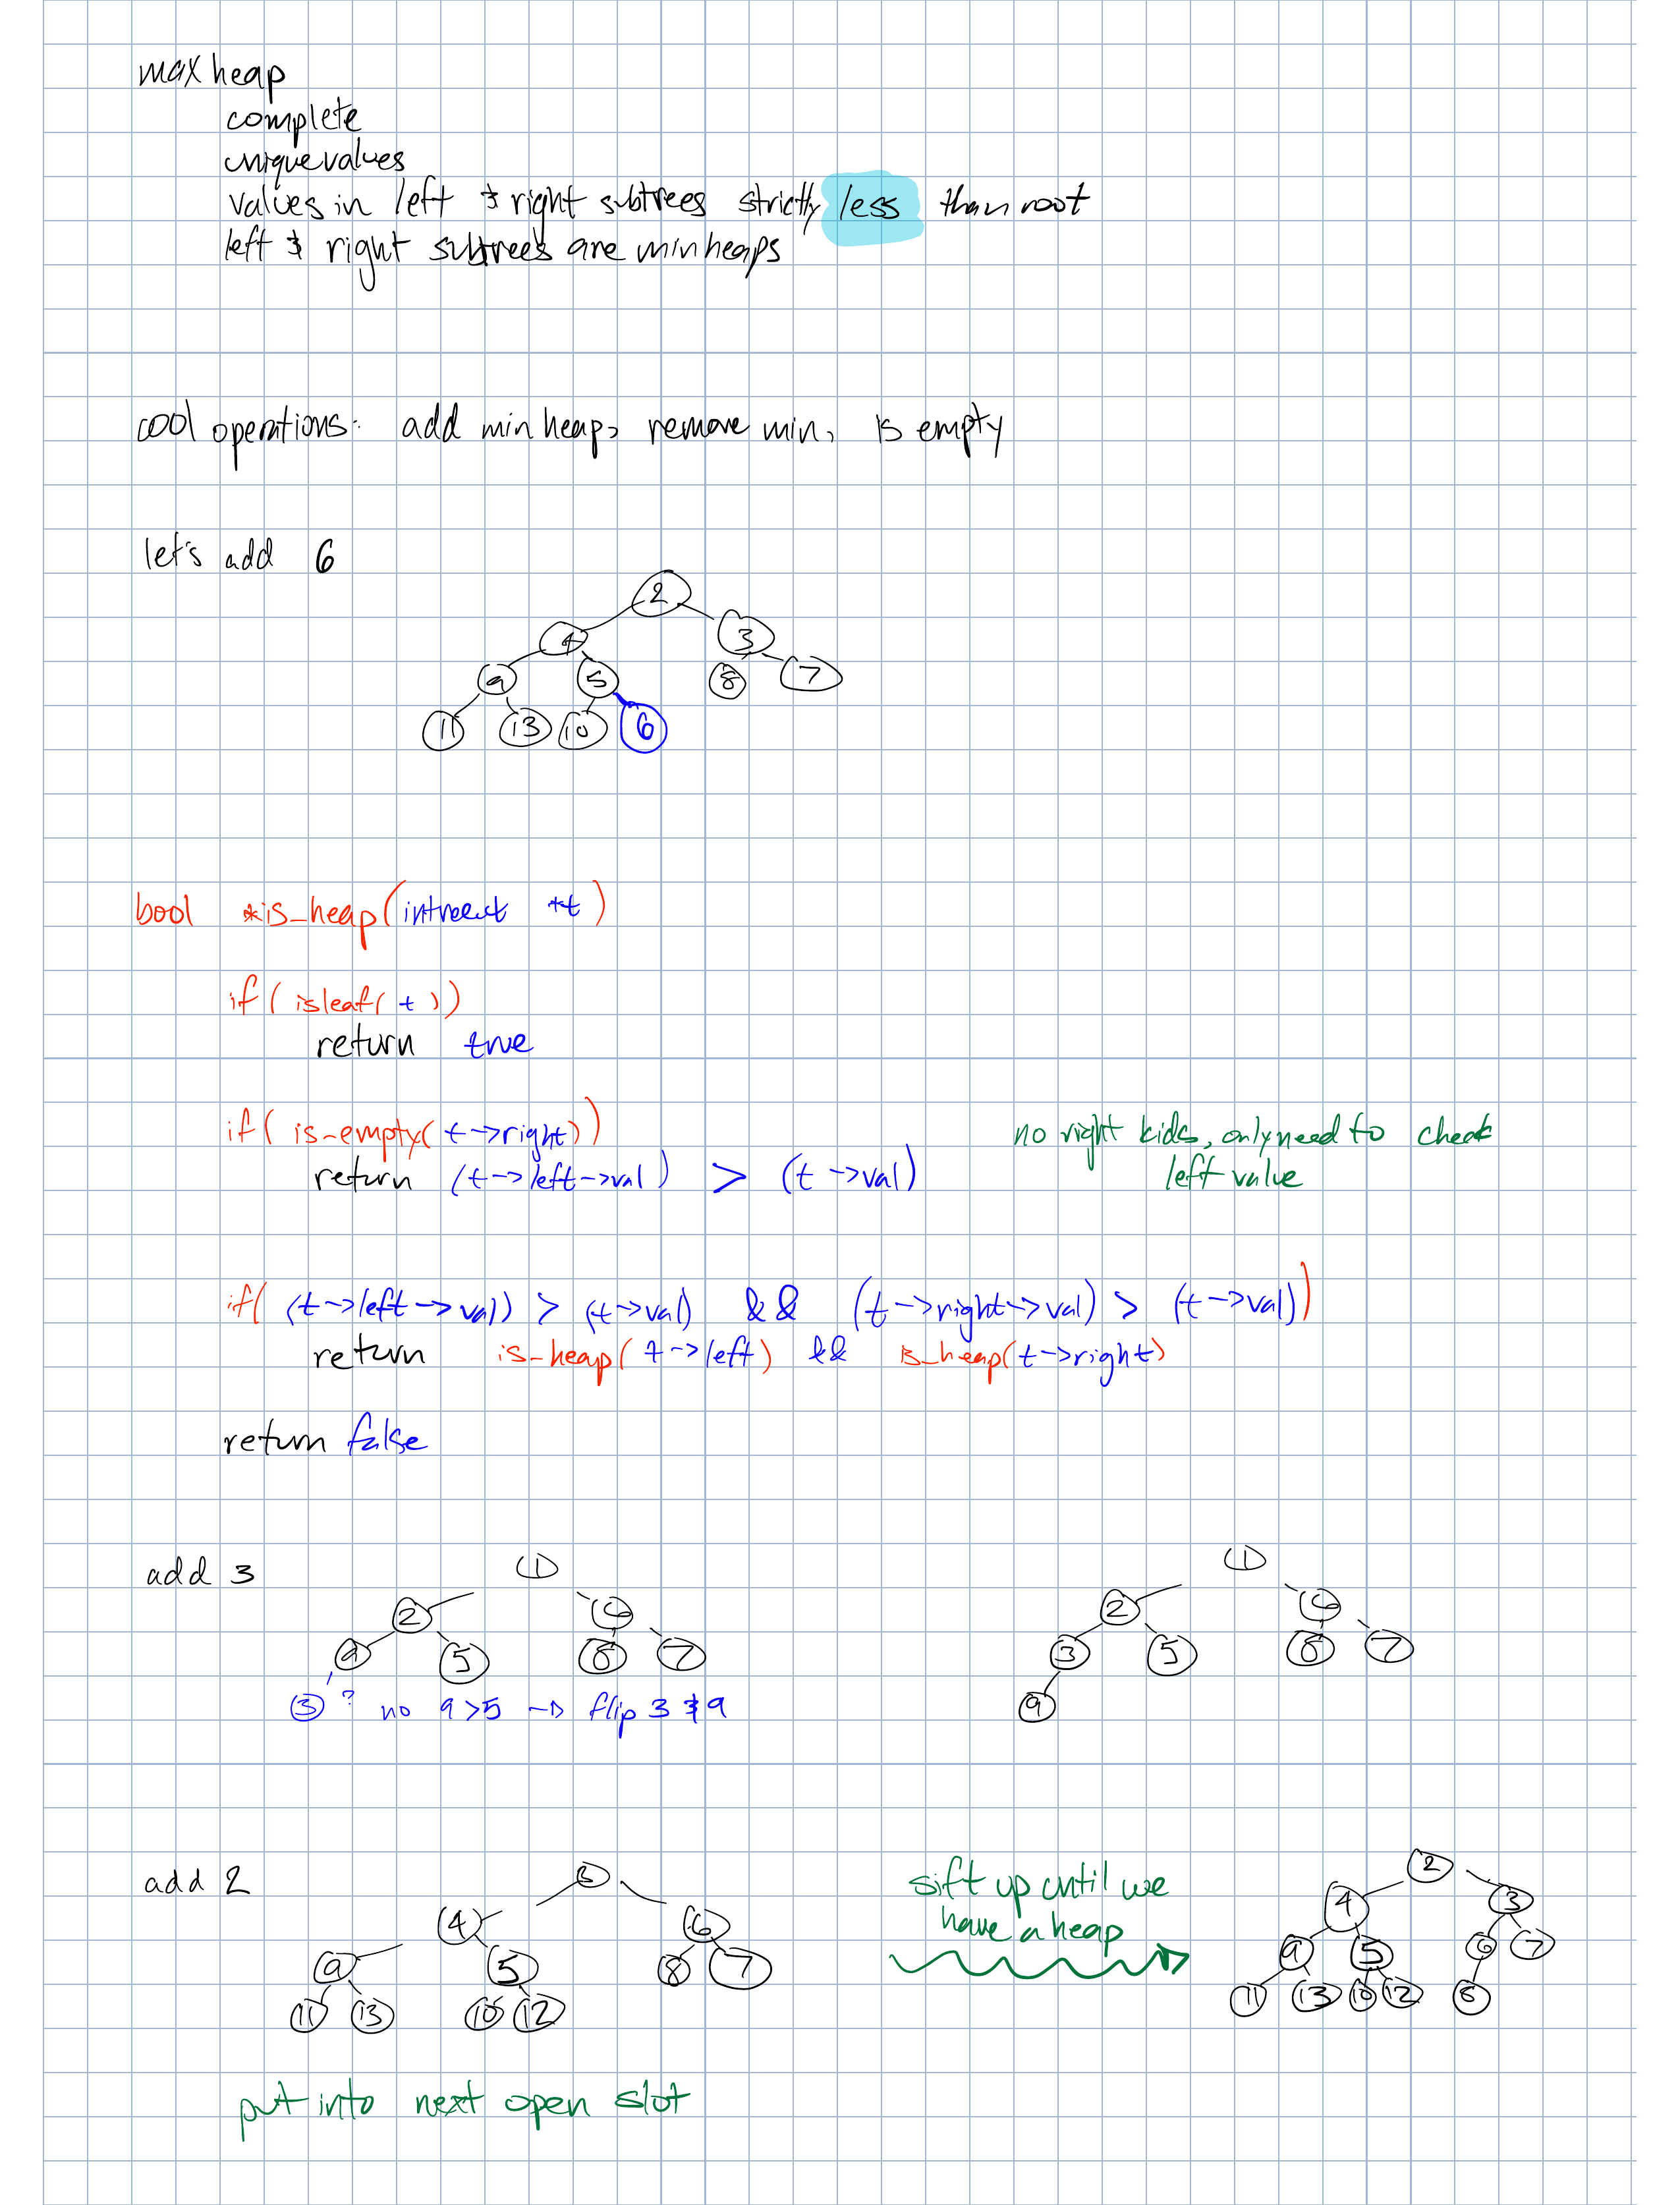 max heap
complete
unique values
values in left & right subtrees strictly less than root
left & right subtrees are minheaps
cool operations: add min heap, remove min, is empty
let's add 6
2
4 3
9 5 8 7
11 13 10 6
bool *is_heap( *t )
if ( isleaf( t ))
return true
if ( is-empty( t->right))
return (t->left->val) > (t->val)
no right kids, only need to check
left value
if( (t->left->val) > (t->val) && (t->right->val) > (t->val))
return is-heap( t->left) && is_heap(t->right)
return false
add 3
1
2 6
9 5 8 7
3 ? no 9>5 -> flip 3 & 9
1
2 6
3 5 8 7
9
add 2
3
4 6
9 5 8 7
11 13 10 12
put into next open slot
sift up until we
have a heap
2
4 3
9 5 6 7
11 13 10 12 8